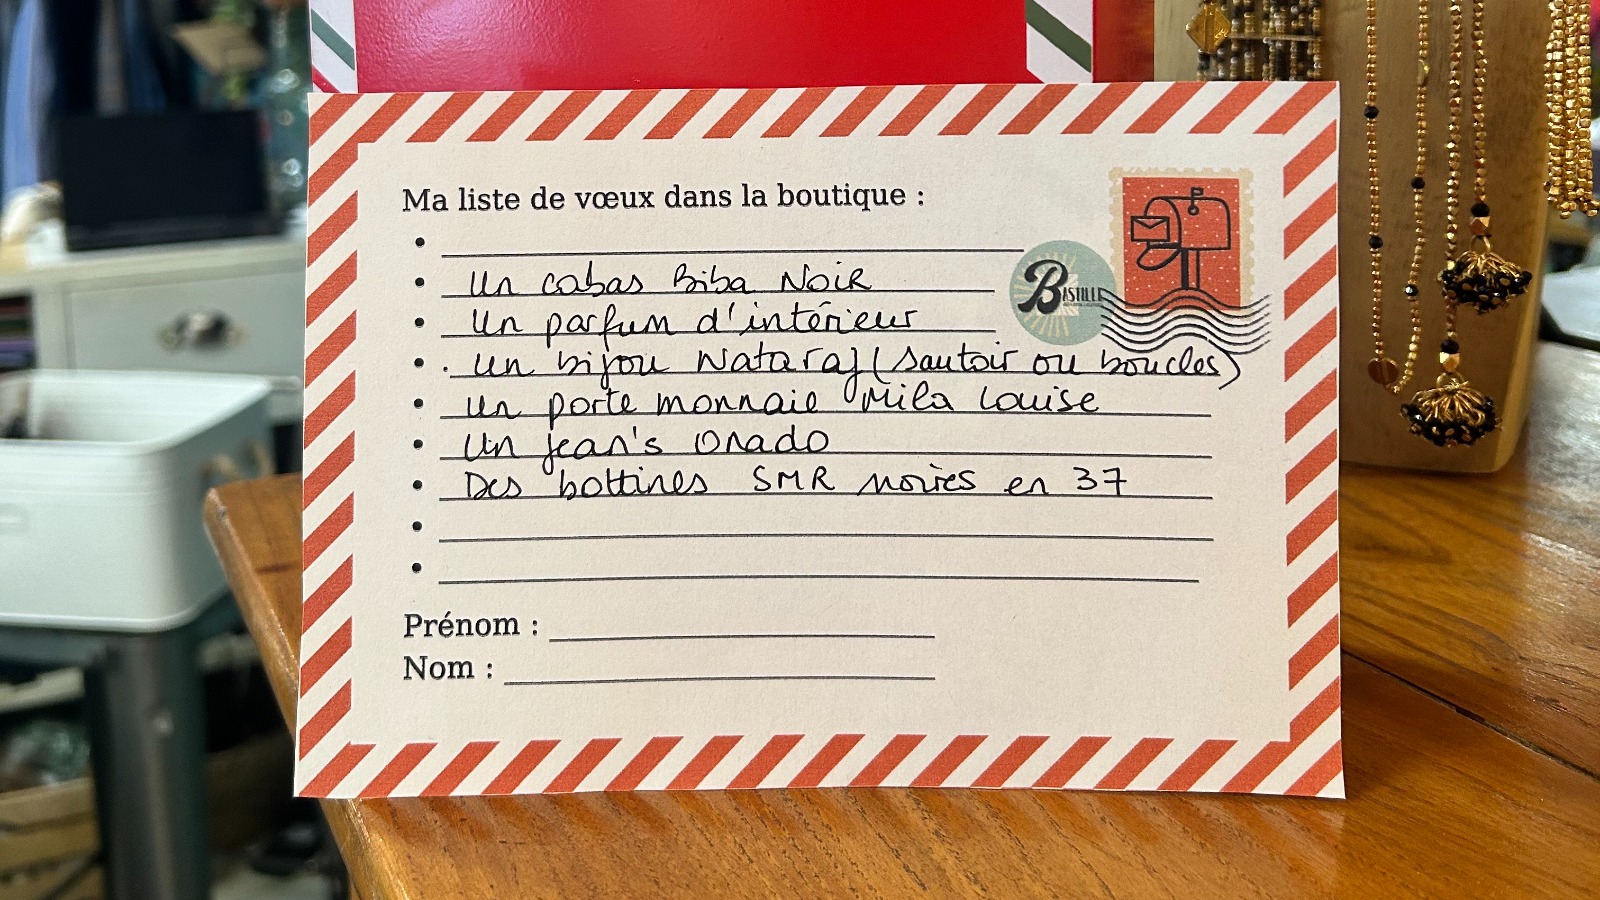 Ma liste de vœux dans la boutique :
• Un cabas Biba Noir
• Un parfum d'intérieur
• . un bijou Nataraj (sautoir ou boucles)
• un porte monnaie Mila Louise
• Un jean's Onado
• Des bottines SMR noires en 37
Prénom :
Nom :
BASTILLE